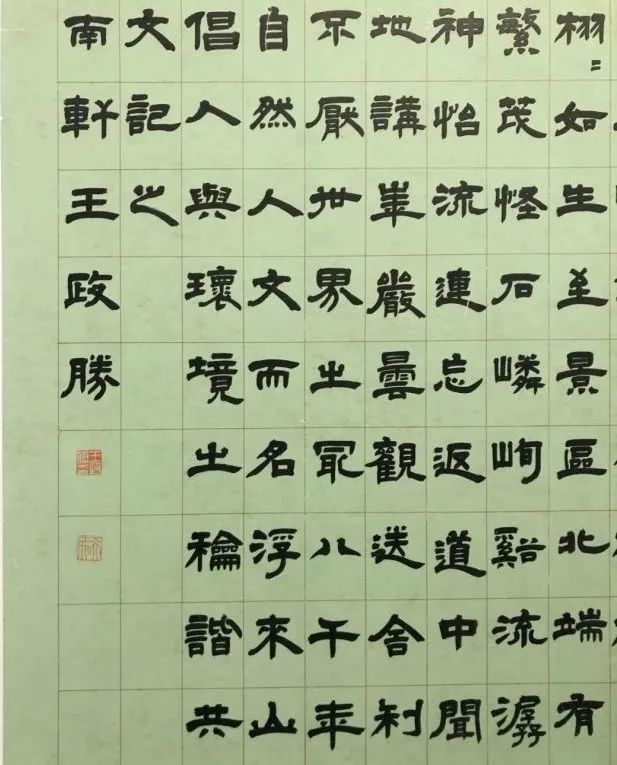 栩〻如生至景區北端有
繁茂怪石嶙峋谿流潺
神怡流連忘返道中聞
地講華嚴曇觀送舍利
不厭世界之冣八千年
自然人文而名浮來山
倡人與環境之龢諧共
文記之
南軒王政勝